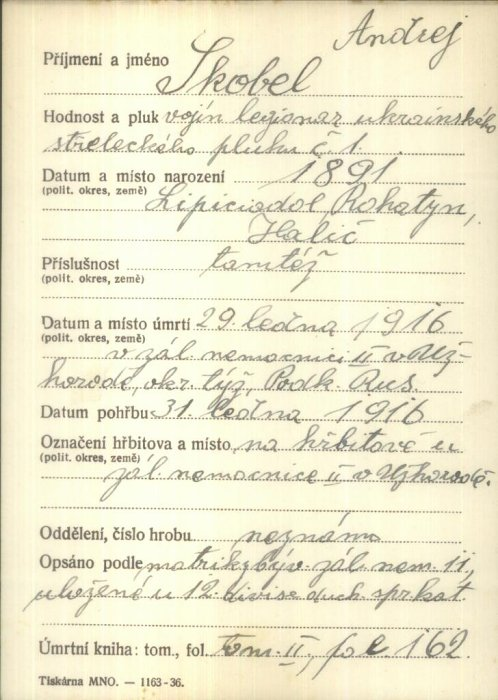 Andrej
Příjmení a jméno Skobel
Hodnost a pluk vojín legionař ukrainského
střeleckého pluku č 1.
Datum a místo narození 1891
(polit. okres, země) Lipiciadol, Rohatyn,
Halič
Příslušnost tamtéž
(polit. okres, země)
Datum a místo úmrtí 29. ledna 1916
(polit. okres, země) v zál. nemocnici II v Už-
horodě, okr. týž, Podk. Rus.
Datum pohřbu 31 ledna 1916
Označení hřbitova a místo na hřbitově u
(polit. okres, země) zál. nemocnice II v Užhorodě.
Oddělení, číslo hrobu neznámo
Opsáno podle matriky býv. zál. nem. II,
uložené u 12. divise duch správ.
Úmrtní kniha: tom., fol. tom. II, fol. 162.
Tiskárna MNO. — 1163-36.